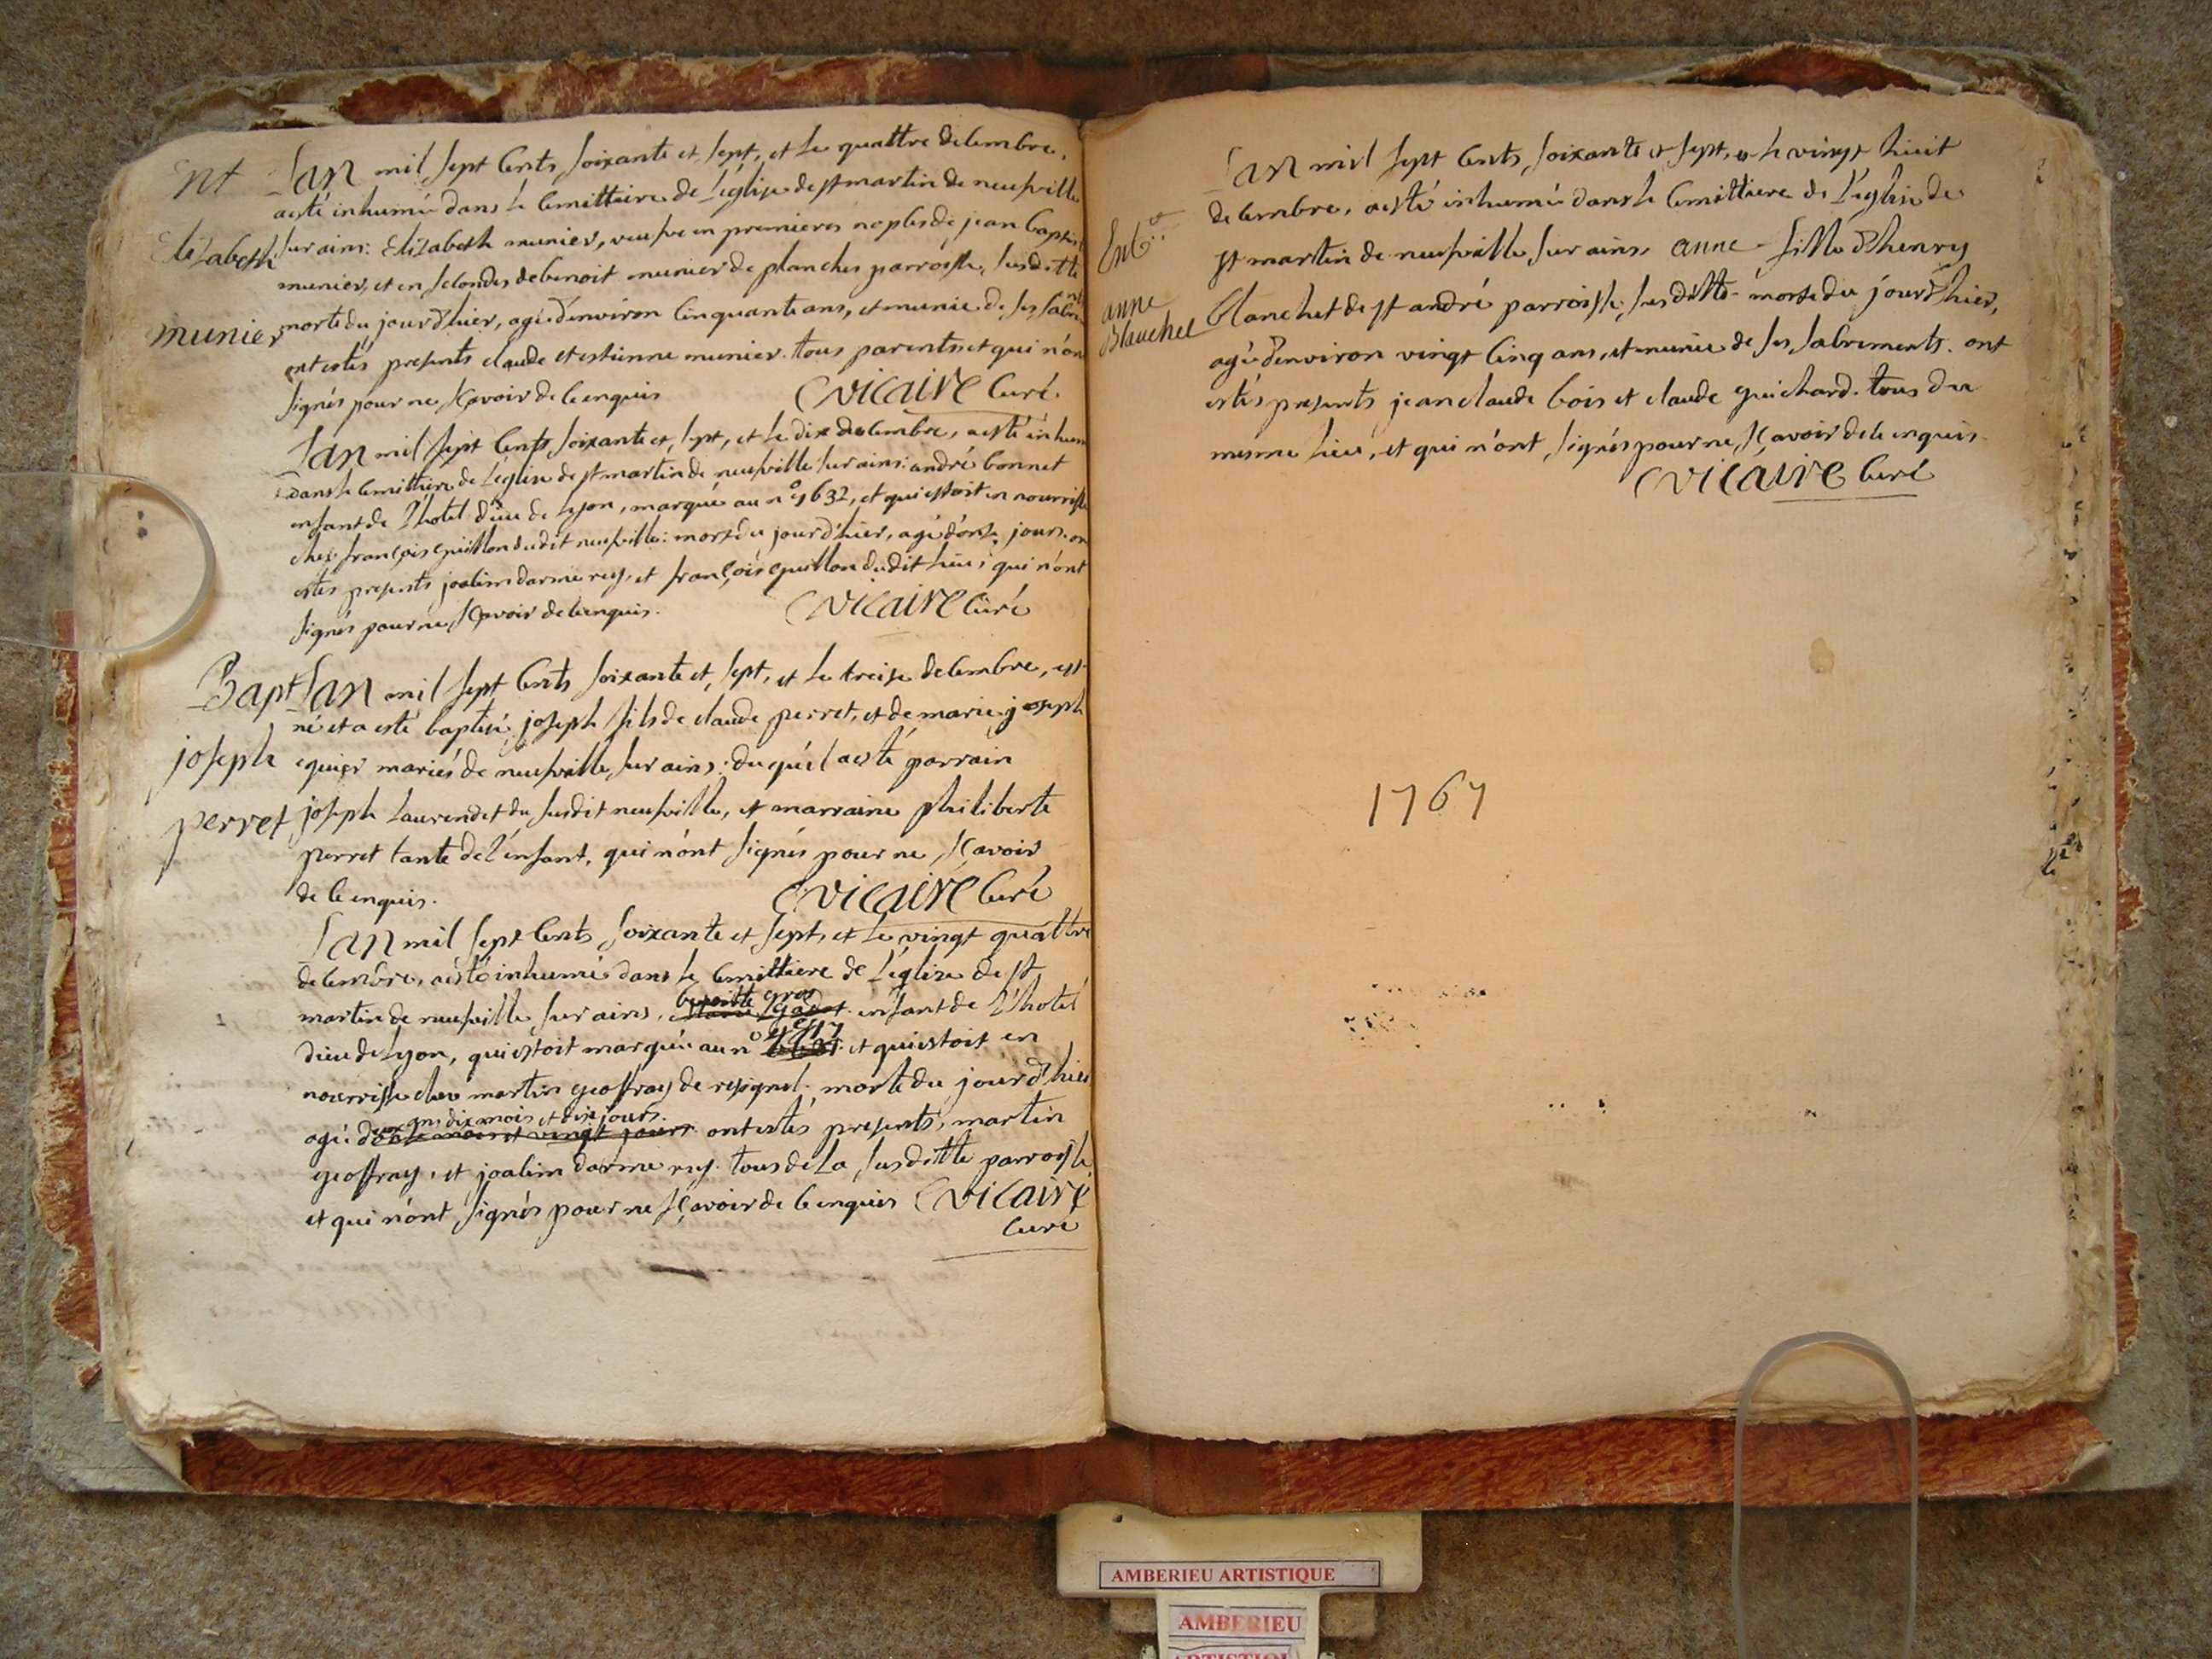 Ent
Elizabeth
munier
Lan mil sept cents soixante et sept, et le quattre decembre,
a esté inhumé dans le cemittiere de l'église de st martin de neufville
sur ains: Elizabeth munier, veufve en premieres nopces de jean baptist
munier, et en secondes de benoit munier de planches parroisse susditte
morte du jour d'hier, agée d'environ cinquante ans, et munie de ses sacr
ont estés presents claude et estienne munier. tous parents et qui n'on
signés pour ne sçavoir de ce enquis Vicaire Curé
Lan mil sept cents soixante et sept, et le dix decembre, a esté inhum
dans le cemittiere de l'église de st martin de neufville sur ains: andré bonnet
enfant de l'hotel dieu de Lyon, marqué au n° 9632, et qui estoit en nourrisse
chez françois guillon dudit neufville: mort du jour d'hier, agé d'onze jours. on
estés presents joacim darmerey, et françois guillon dudit lieu, qui n'ont
signés pour ne sçavoir de ce enquis. Vicaire Curé
Bapt
joseph
perret
Lan mil sept cents soixante et sept, et le treise decembre, est
né et a esté baptisé, joseph fils de claude perret, et de marie joseph
eguier mariés de neufville sur ains: duquél a esté parrain
joseph Laurendet du susdit neufville, et marraine philiberte
perret tante de l'enfant, qui n'ont signés pour ne sçavoir
de ce enquis. Vicaire Curé
Lan mil sept cents soixante et sept, et le vingt quattre
decembre, a esté inhumé dans le cemittiere de l'église de st
benoitte gros
martin de neufville sur ains, enfant de l'hotel
dieu de Lyon, qui estoit marquée au n° et qui estoit en
nourrisse chez martin geoffray de resignel. morte du jour d'hier
deux ans dix mois et dix jours.
agée d'onze mois et vingt jours ont estés presents, martin
geoffray, et joacim darmerey. tous de la susditte parroisse
et qui n'ont signés pour ne sçavoir de ce enquis Vicaire
Curé
Ent
anne
Blanchet
Lan mil sept cents soixante et sept, et le vingt huit
decembre, a esté inhumé dans le cemittiere de l'église de
st martin de neufville sur ains, anne fille d'henry
blanchet de st andré parroisse susditte morte du jour d'hier,
agée d'environ vingt cinq ans, et munie de ses sacrements. ont
estés presents jean claude bois et claude guichard. tous du
mesme lieu, et qui n'ont signés pour ne sçavoir de ce enquis.
Vicaire Curé
1767
AMBERIEU ARTISTIQUE
AMBERIEU
ARTISTIQUE